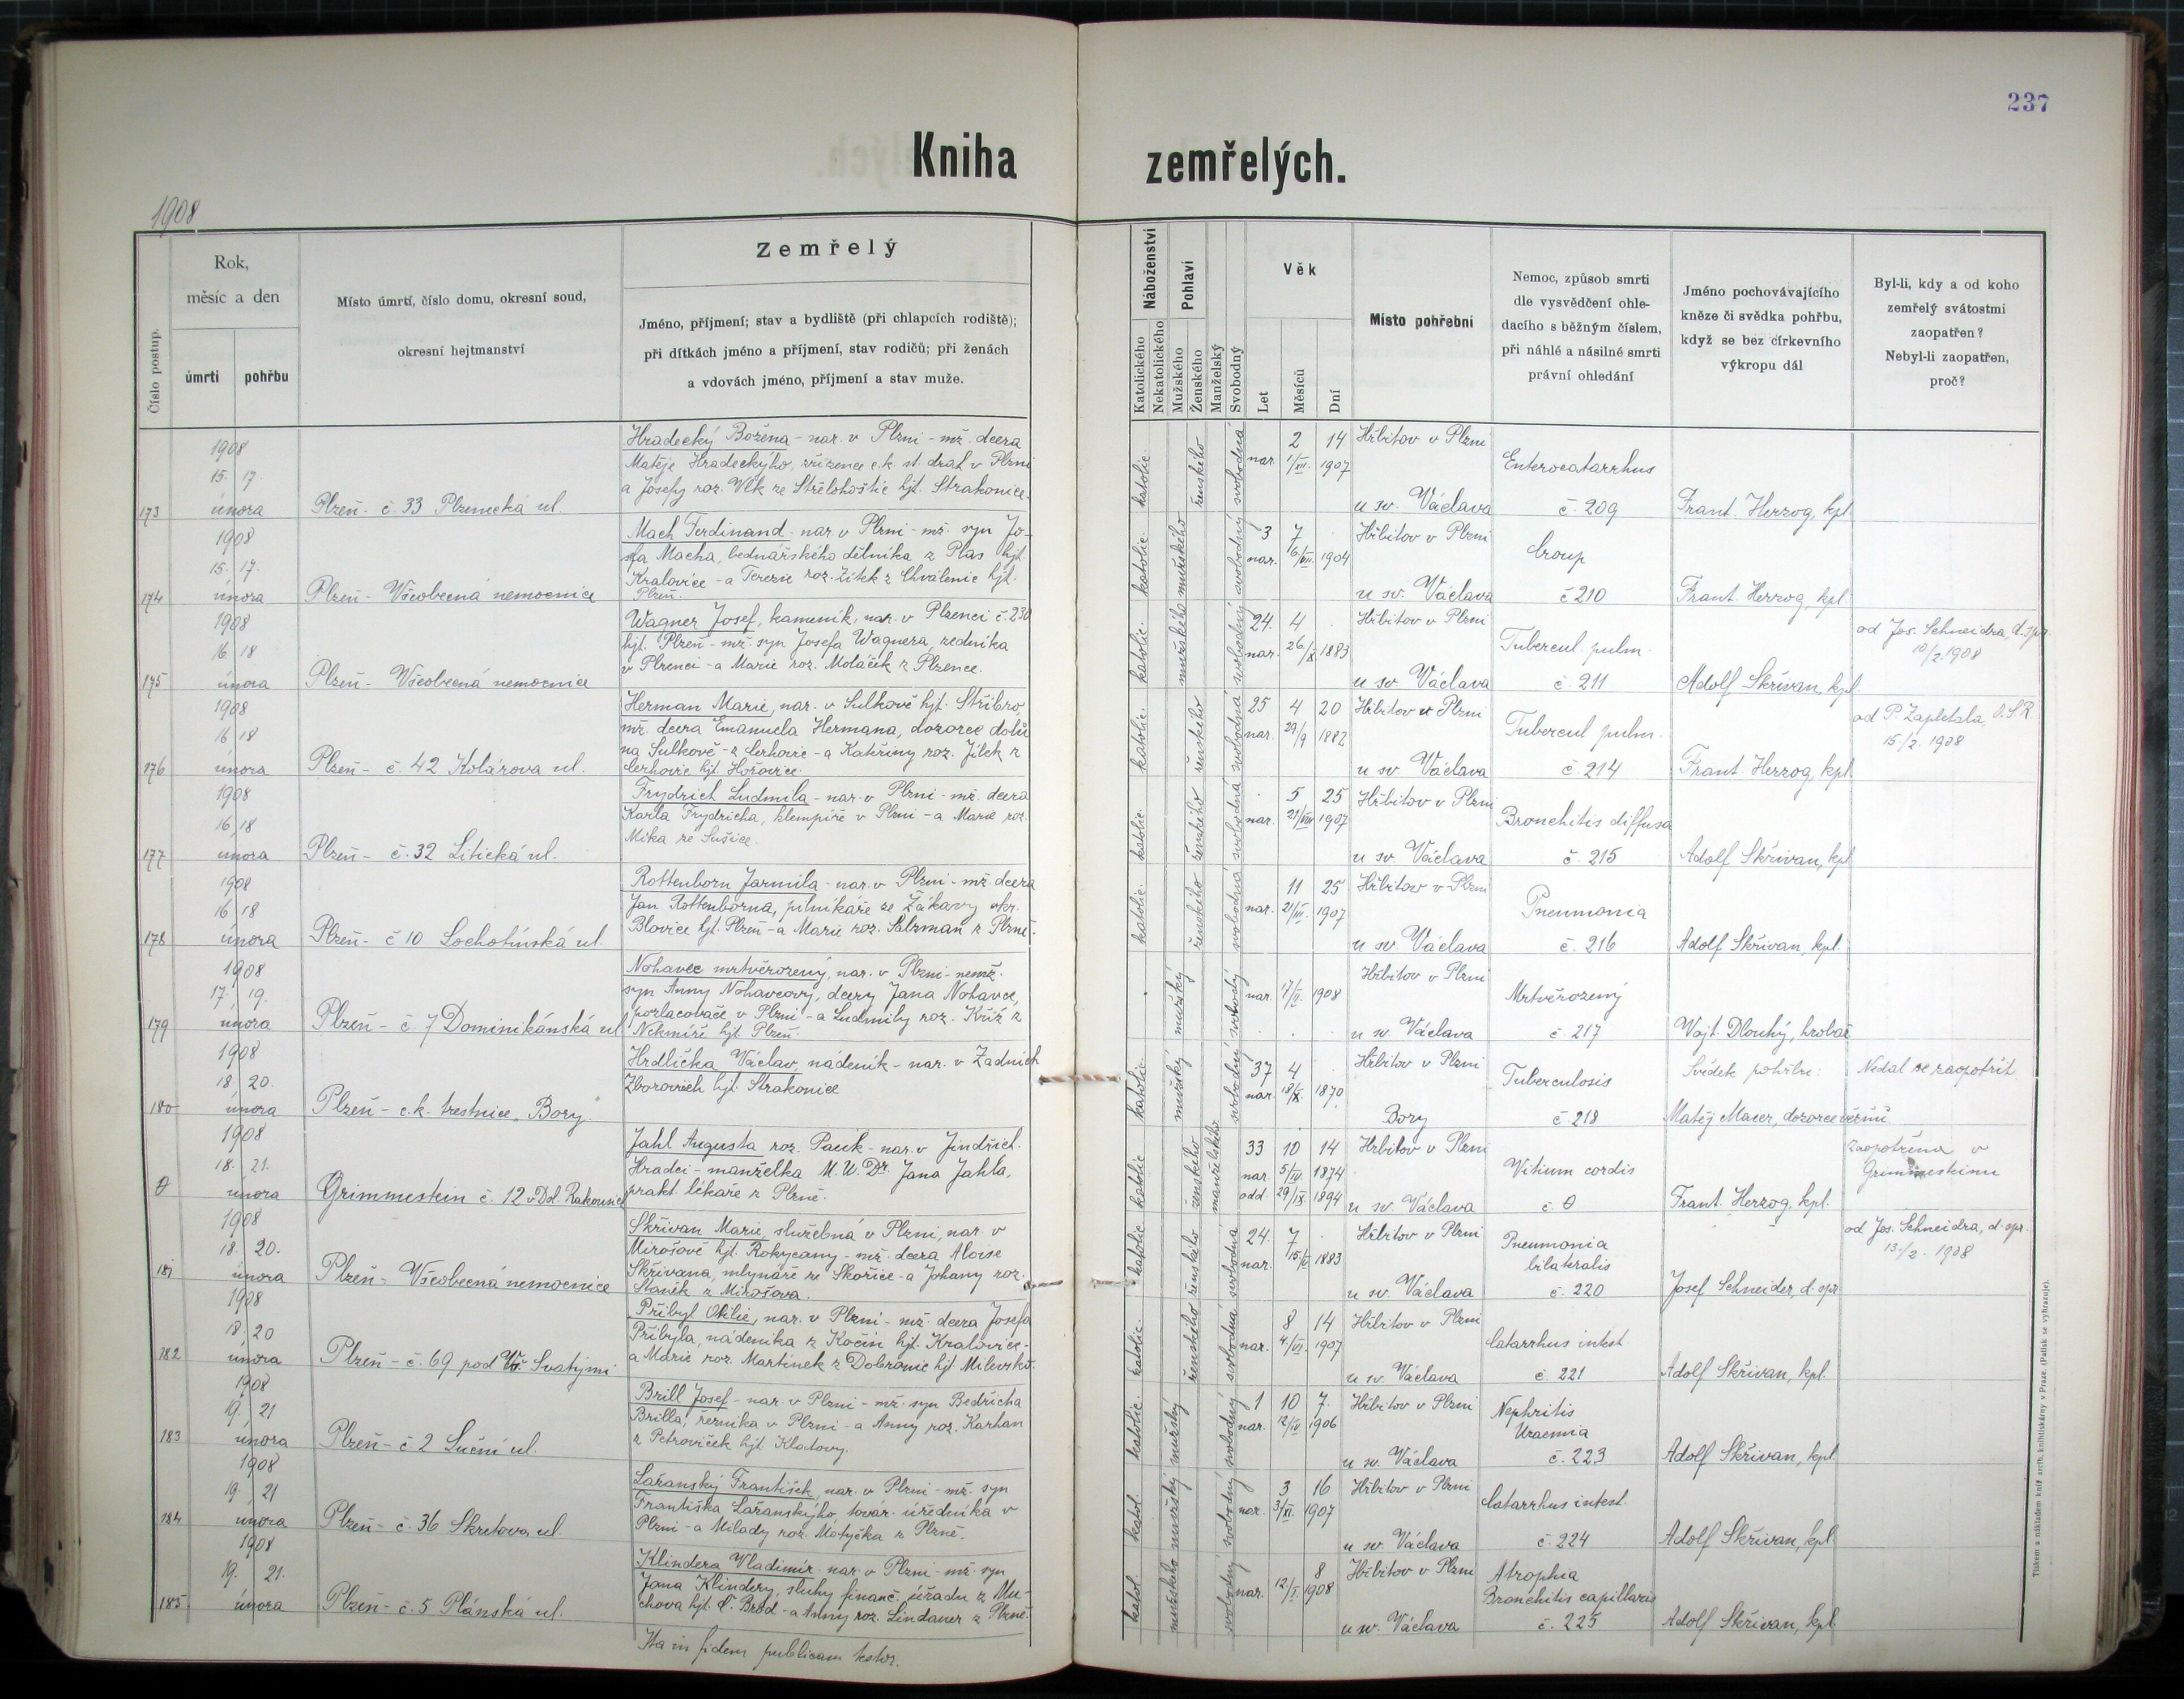 237
Kniha zemřelých.
1908
Číslo postup.
Rok, měsíc a den
úmrtí
pohřbu
Místo úmrtí, číslo domu, okresní soud, okresní hejtmanství
Zemřelý
Jméno, příjmení; stav a bydliště (při chlapcích rodiště);
při dítkách jméno a příjmení, stav rodičů; při ženách
a vdovách jméno, příjmení a stav muže.
Náboženství
Katolického
Nekatolického
Pohlaví
Mužského
Ženského
Manželský
Svobodný
Věk
Let
Měsíců
Dní
Místo pohřební
Nemoc, způsob smrti
dle vysvědčení ohle-
dacího s běžným číslem,
při náhlé a násilné smrti
právní ohledání
Jméno pochovávajícího
kněze či svědka pohřbu,
když se bez církevního
výkropu dál
Byl-li, kdy a od koho
zemřelý svátostmi
zaopatřen?
Nebyl-li zaopatřen,
proč?
173
1908
15. 17.
února
Plzeň - č. 33 Plzenecká ul.
Hradecký Božena - nar. v Plzni - mž. dcera
Matěje Hradeckýho, zřízence c.k. st. drah v Plzni
a Josefy roz. Vlk ze Střelohoštic hjt. Strakonice.
katolic. ženského svobodná
2 14
nar. 1/XII. 1907
Hřbitov v Plzni
u sv. Václava
Enterocatarrhus
č. 209
Frant. Herzog, kpl
174
1908
15. 17.
února
Plzeň - Všeobecná nemocnice
Mach Ferdinand - nar. v Plzni - mž. syn Jo-
sefa Macha, bednářského dělníka z Plas hjt.
Kralovice - a Terezie roz. Žítek z Chválenic hjt.
Plzeň.
katolic. mužského svobodný
3 7
nar. 16/VII. 1904
Hřbitov v Plzni
u sv. Václava
Croup
č 210
Frant. Herzog, kpl.
175
1908
16 18
února
Plzeň - Všeobecná nemocnice
Wagner Josef, kameník, nar. v Plzenci č. 230
hjt. Plzeň - mž. syn Josefa Wagnera, zedníka
v Plzenci - a Marie roz. Moláček z Plzence.
katolic. mužského svobodný
24. 4
nar. 26./X. 1883
Hřbitov v Plzni
u sv. Václava
Tubercul. pulm.
č. 211
Adolf Skřivan, kpl
od Jos. Schneidra, d. spr.
10/2. 1908
176
1908
16 18
února
Plzeň - č. 42 Kolárova ul.
Herman Marie, nar. v Sulkově hjt. Stříbro
mž. dcera Emanuela Hermana, dozorce dolů
na Sulkově - z Cerhovic - a Kateřiny roz. Jílek z
Cerhovic hjt. Hořovice.
katolic. ženského svobodná
25 4 20
nar. 29/9 1882
Hřbitov v Plzni
u sv. Václava
Tubercul pulm.
č. 214
Frant. Herzog, kpl
od P. Zapletala, O.S.R.
15/2. 1908
177
1908
16 18
února
Plzeň - č. 32 Litická ul.
Frydrich Ludmila - nar. v Plzni - mž. dcera
Karla Frydricha, klempíře v Plzni - a Marie roz.
Mika ze Sušice.
katolic. ženského svobodná
5 25
nar. 21/VIII 1907
Hřbitov v Plzni
u sv. Václava
Bronchitis diffusa
č. 215
Adolf Skřivan, kpl
178
1908
16 18
února
Plzeň - č 10 Lochotínská ul.
Rottenborn Jarmila - nar. v Plzni - mž. dcera
Jan Rottenborna, pilníkáře ze Žákavy okr.
Blovice hjt. Plzeň - a Marie roz. Salzman z Plzně.
katolic. ženského svobodná
11 25
nar. 21/III. 1907
Hřbitov v Plzni
u sv. Václava
Pneumonia
č. 216
Adolf Skřivan, kpl.
179
1908
17. 19.
února
Plzeň - č. 7 Dominikánská ul.
Nohavec mrtvěrozený, nar. v Plzni - nemž.
syn Anny Nohavcovy, dcery Jana Nohavce,
pozlacovače v Plzni - a Ludmily roz. Kříž z
Nekmíře hjt. Plzeň.
mužský svobodý
nar. 17/II. 1908
Hřbitov v Plzni
u sv. Václava
Mrtvěrozený
č. 217
Vojt. Dlouhý, hrobař
180
1908
18. 20.
února
Plzeň - c.k. trestnice „Bory"
Hrdlička Václav, nádeník - nar. v Zadních
Zborovicích hjt. Strakonice
katolic. mužský svobodný
37 4
nar. 18/X. 1870
Hřbitov v Plzni
Bory
Tuberculosis
č. 218
Svědek pohřbu:
Matěj Maier, dozorce věznů
Nedal se zaopatřit
θ
1908
18. 21.
února
Grimmestein č. 12 v Dol. Rakousích
Jahl Augusta roz. Pauk - nar. v Jindřich.
Hradci - manželka M.U.Dr. Jana Jahla,
prakt. lékaře z Plzně.
katolic ženského manželského
33 10 14
nar. 5/IV. 1874
odd. 29/IX. 1894
Hřbitov v Plzni
u sv. Václava
Vitium cordis
č. θ
Frant. Herzog, kpl.
Zaopatřena v
Grimmesteinu
181
1908
18. 20.
února
Plzeň - Všeobecná nemocnice
Skřivan Marie, služebná v Plzni, nar. v
Mirošově hjt. Rokycany - mž. dcera Aloise
Skřivana, mlynáře ze Skořice - a Johany roz.
Staněk z Mirošova.
katolic ženského svobodná
24. 7
nar. 1883
Hřbitov v Plzni
u sv. Václava
Pneumonia
bilateralis
č. 220
Josef Schneider, d. spr
od Jos. Schneidra, d. spr.
13./2. 1908
182
1908
18. 20
února
Plzeň - č. 69 pod Vš. Svatými
Přibyl Otilie, nar. v Plzni - mž. dcera Josefa
Přibyla, nádeníka z Kočín hjt. Kralovice -
a Marie roz. Martinek z Dobronic hjt. Milevsko.
katolic. ženského svobodná
8 14
nar. 4./VI. 1907
Hřbitov v Plzni
u sv. Václava
Catarrhus intest
č. 221
Adolf Skřivan, kpl.
183
1908
19. 21
února
Plzeň - č 2 Luční ul.
Brill Josef - nar. v Plzni - mž. syn Bedřicha
Brilla, řezníka v Plzni - a Anny roz. Karhan
z Petroviček hjt. Klatovy.
katolic. mužský svobodný
1 10 7.
nar. 12/IV. 1906
Hřbitov v Plzni
u sv. Václava
Nephritis
Uraemia
č. 223
Adolf Skřivan, kpl.
184
1908
19. 21
února
Plzeň - č. 36 Skretova ul.
Lažanský František, nar. v Plzni - mž. syn
Františka Lažanskýho, továr. úředníka v
Plzni - a Milady roz. Motyčka z Plzně.
katol. mužský svobodný
3 16
nar. 3/XI. 1907
Hřbitov v Plzni
u sv. Václava
Catarrhus intest.
č. 224
Adolf Skřivan, kpl
185
1908
19. 21.
února
Plzeň - č. 5 Plánská ul.
Klindera Wladimír nar. v Plzni - mž. syn
Jana Klindery, sluhy finanč. úřadu z Mu-
chova hjt. Č. Brod - a Anny roz. Lindauer z Plzně.
katol. mužského svobodný
8
nar. 12/I. 1908
Hřbitov v Plzni
u sv. Václava
Atrophia
Bronchitis capillaris
č. 225
Adolf Skřivan, kpl.
Ita in fidem publicam testor.
Tiskem a nákladem kníž. arcib. knihtiskárny v Praze. (Patisk se vyhrazuje).